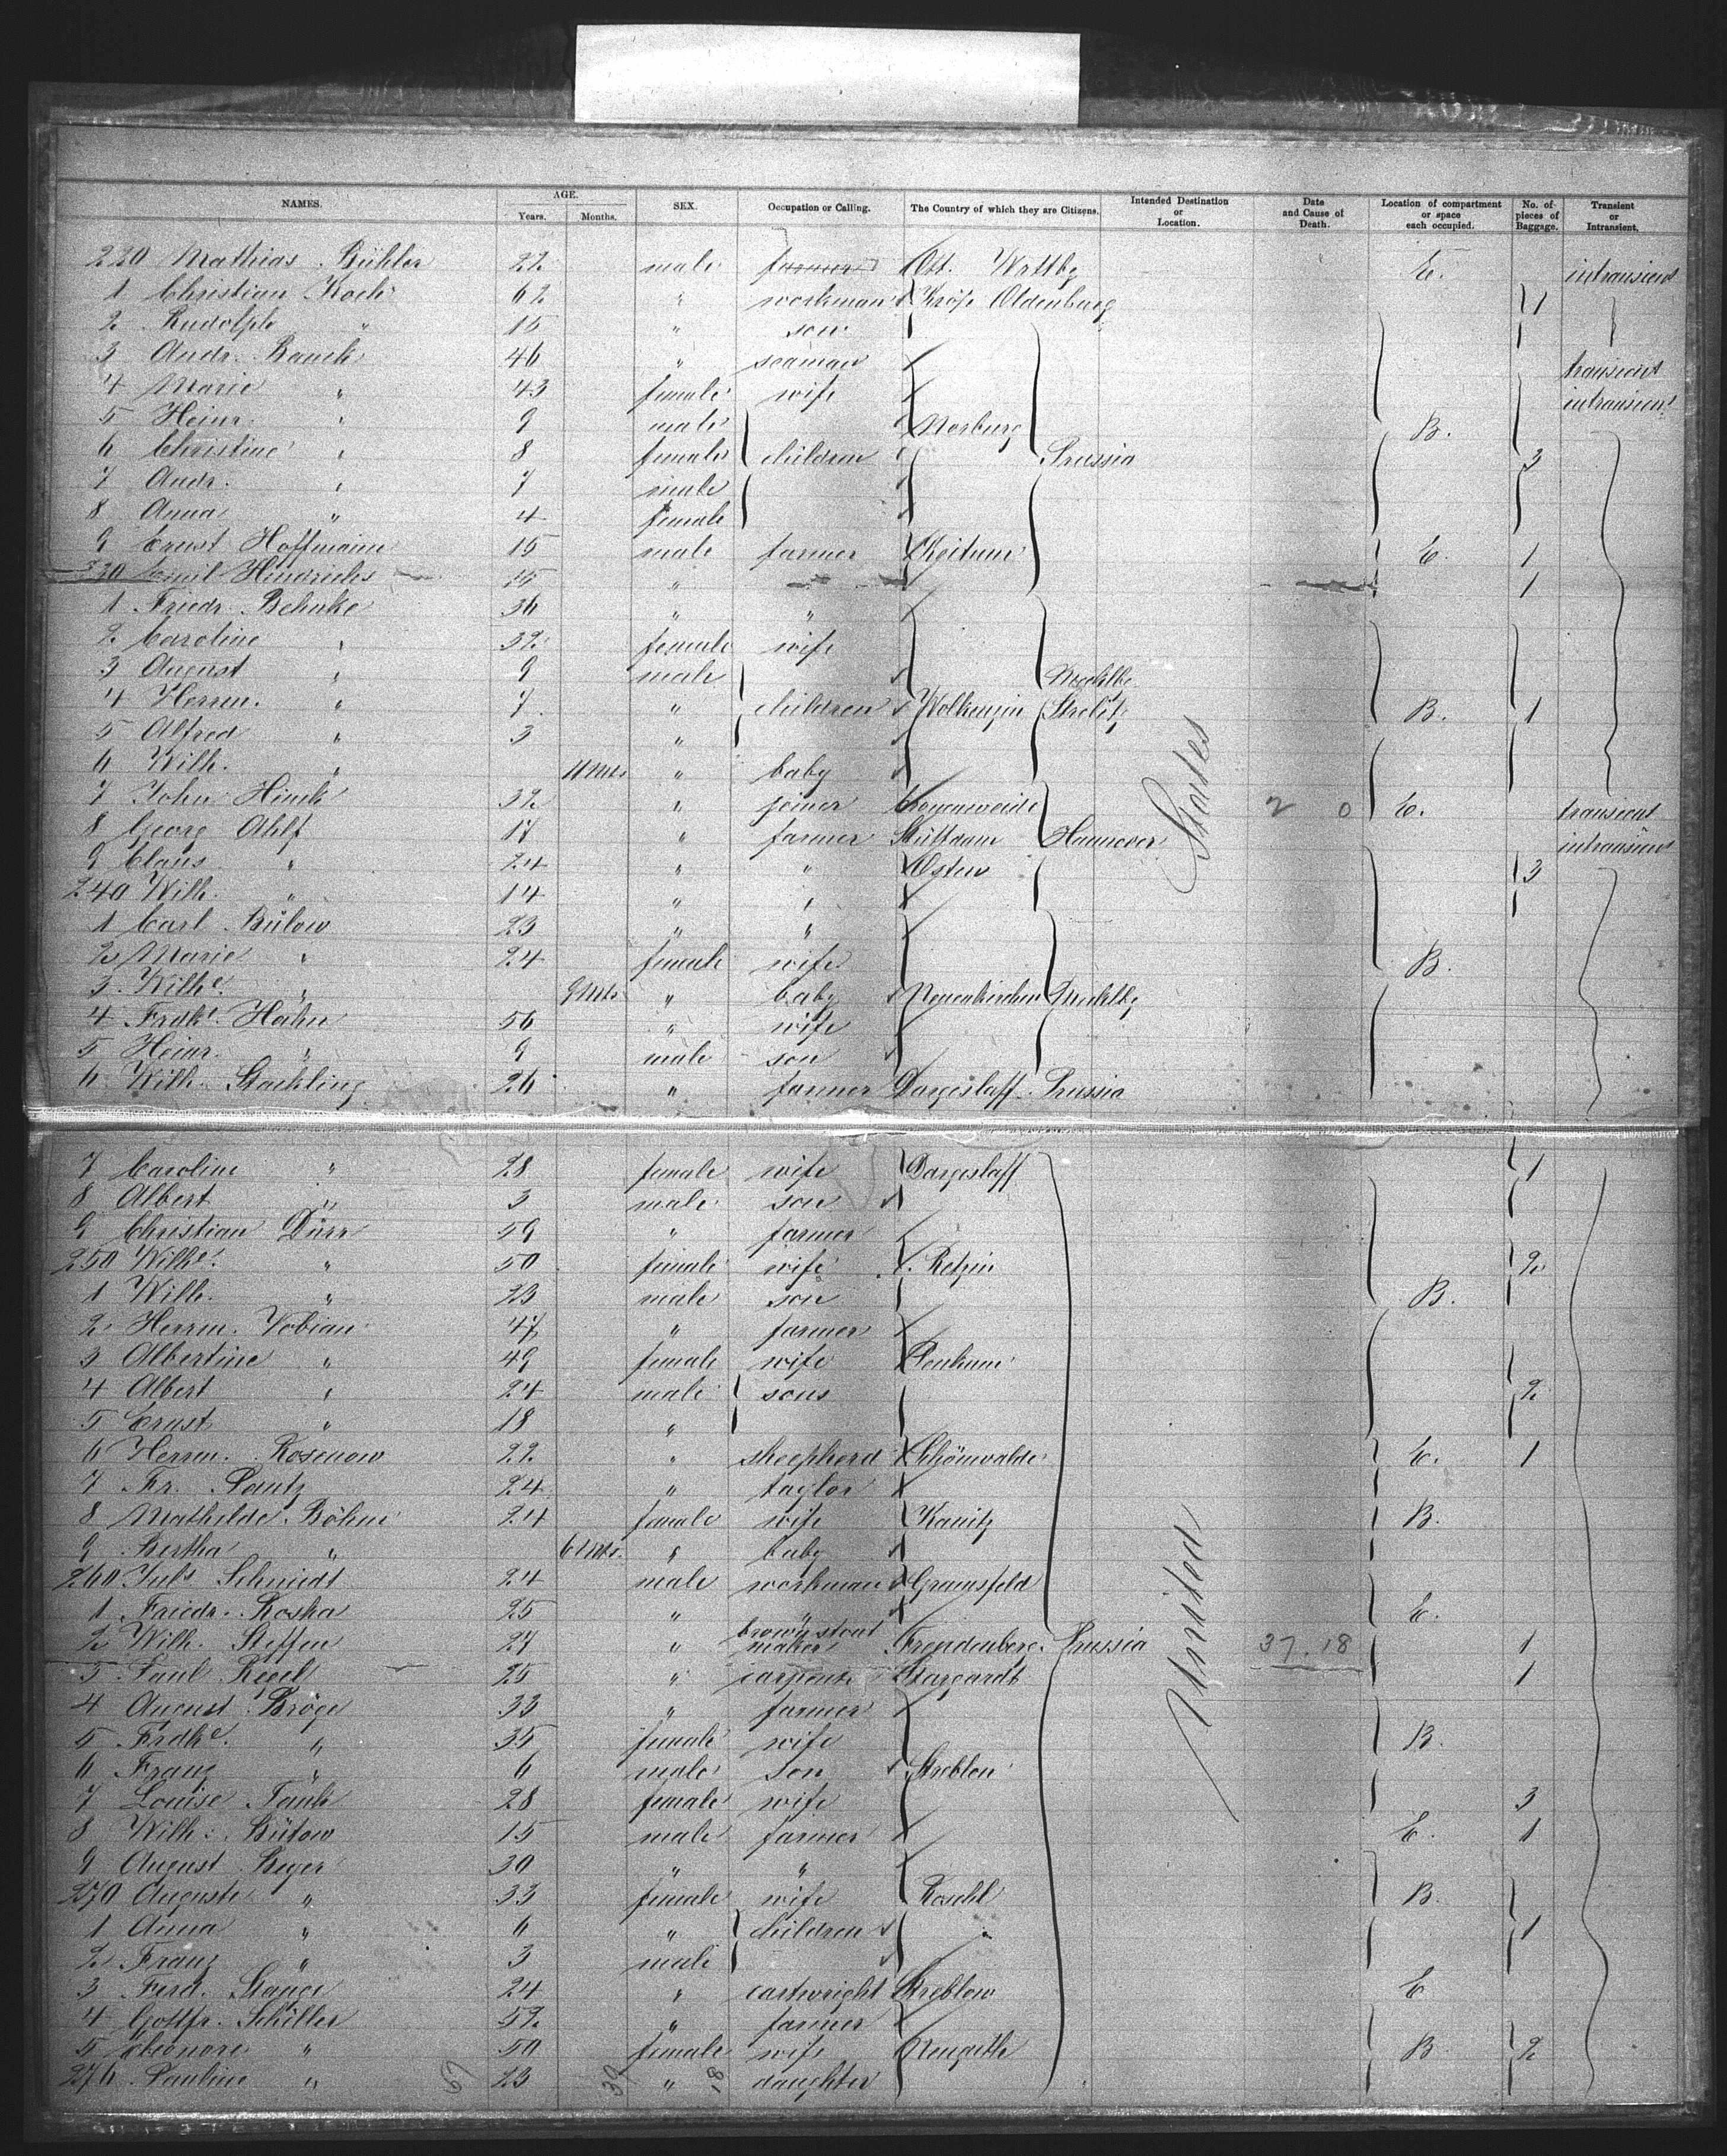 NAMES. AGE. Years. Months. SEX. Occupation or Calling. The Country of which they are Citizens. Intended Destination or Location. Date and Cause of Death. Location of compartment or space each occupied. No. of pieces of Baggage. Transient or Intransient.
220 Mathias Bühler 22 male farmer Ost. Wrttbg E. intransient
1 Christian Koch 62 " workman Oldenburg 1
2 Rudolph " 15 " son
3 Andr. Bauck 46 " seaman transient
4 Marie " 43 female wife intransient
5 Heinr. " 9 male Norburg B.
6 Christine " 8 female children Prussia 3
7 Andr. " 7 male
8 Anna " 4 female
9 Ernst Hoffmann 15 male farmer Keitum E. 1
330 Emil Hindrichs 15 " " 1
1 Friedr. Behnke 36 " "
2 Caroline " 32 female wife
3 August " 9 male Mecklbg
4 Herrm. " 7 " children Wolkenzin Strelitz B. 1
5 Alfred " 3 "
6 Wilh. " 11 Mts " baby
7 John Hinck 32 " joiner Cronenweide 2 0 E. transient
8 Georg Ahlf 17 " farmer Hannover intransient
9 Claus " 24 " " Osten 3
240 Wilh. " 14 " "
1 Carl Bülow 23 " "
2 Marie " 24 female wife B.
3 Wilhe. " 9 Mts " baby Neuenkirchen Mecklbg
4 Frdke. Hahn 56 " wife
5 Heinr. " 9 male son
6 Wilh. Stackling 26 " farmer Dargeslaff Prussia
7 Caroline " 28 female wife Dargeslaff 1
8 Albert " 3 male son
9 Christian Dürr 59 " farmer
250 Wilhe. " 50 female wife Retzin 2
1 Wilh. " 23 male son B.
2 Herrm. Vobian 47 " farmer
3 Albertine " 49 female wife Penkun
4 Albert " 24 male sons 2
5 Ernst " 18 "
6 Herrm. Rosenow 22 " sheepherd Schönwalde E. 1
7 Fr. Pautz 24 " taylor
8 Mathilde Böhm 24 female wife Kanitz B.
9 Bertha " 6 Mts. " baby
260 Juls Schmidt 24 male workman Gramsfeld
1 Friedr. Koska 25 " " E.
2 Wilh. Steffen 27 " brownstout maker Freudenberg Prussia 37.18 1
3 Paul Regel 25 " carpenter Stargardt 1
4 August Bröge 33 " farmer
5 Frdke. " 35 female wife B.
6 Franz " 6 male son Streblow
7 Louise Tank 28 female wife 3
8 Wilh. Bütow 15 male farmer E. 1
9 August Beyer 30 " "
270 Auguste " 33 female wife Roschl B.
1 Anna " 6 " children 1
2 Franz " 3 male
3 Ferd. Stange 24 " cartwright Streblow E
4 Gottfr. Schiller 52 " farmer
5 Eleonore " 50 female wife B. 2
276 Pauline " 23 " daughter
67 39 18
United States